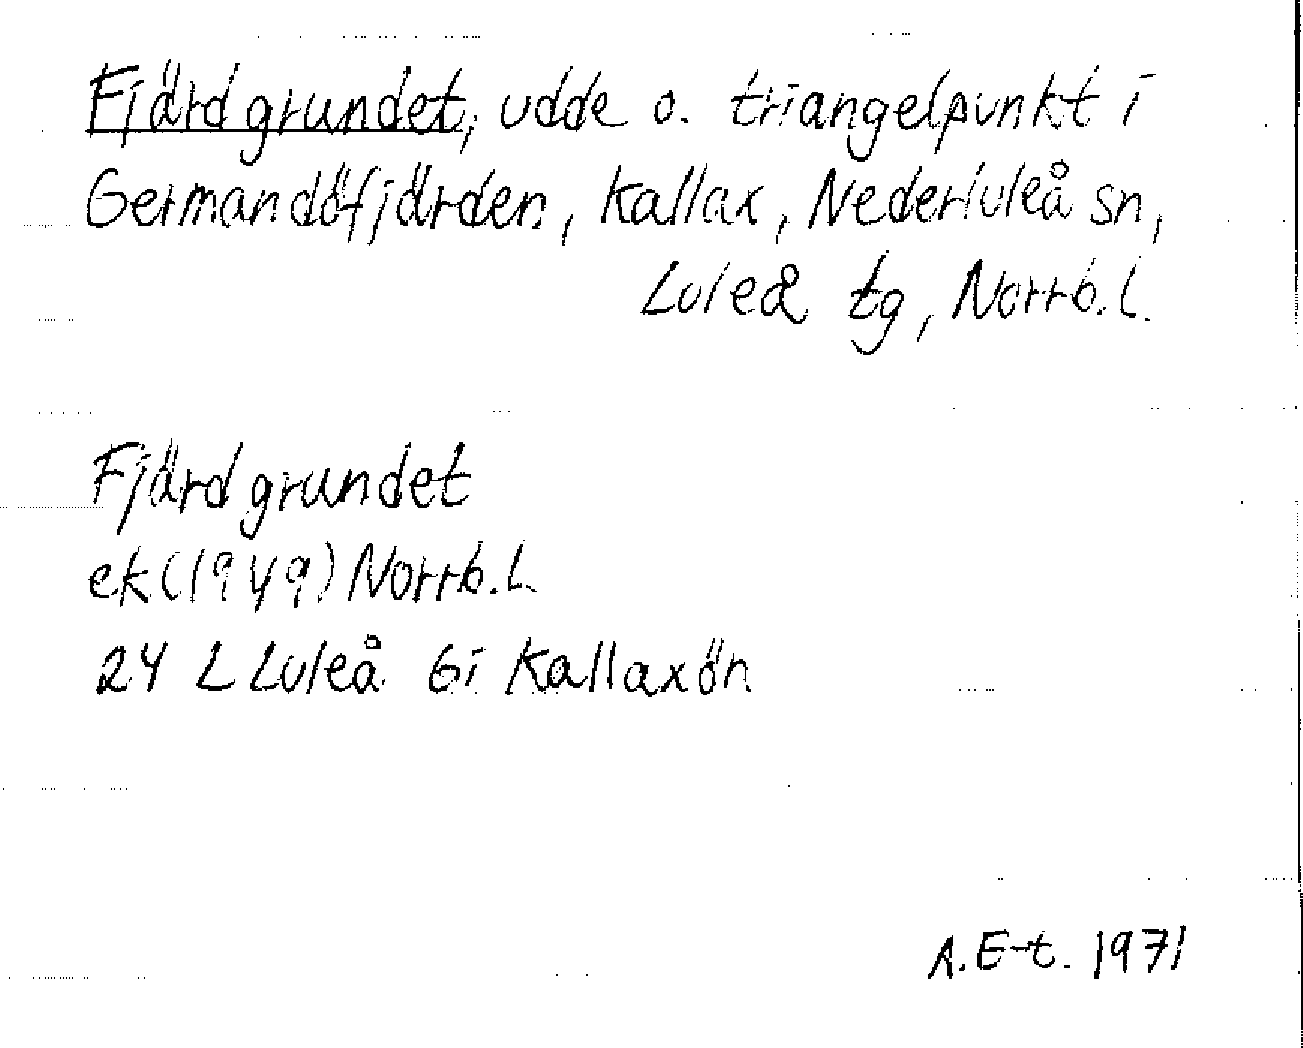 Fjärdgrundet, udde o. triangelpunkt i
Germandöfjärden, Kallax, Nederluleå sn,
Luleå tg, Norrb.l.
Fjärdgrundet
ek(1949) Norrb.L
24 L Luleå 6i Kallaxön
A.E-t. 1971